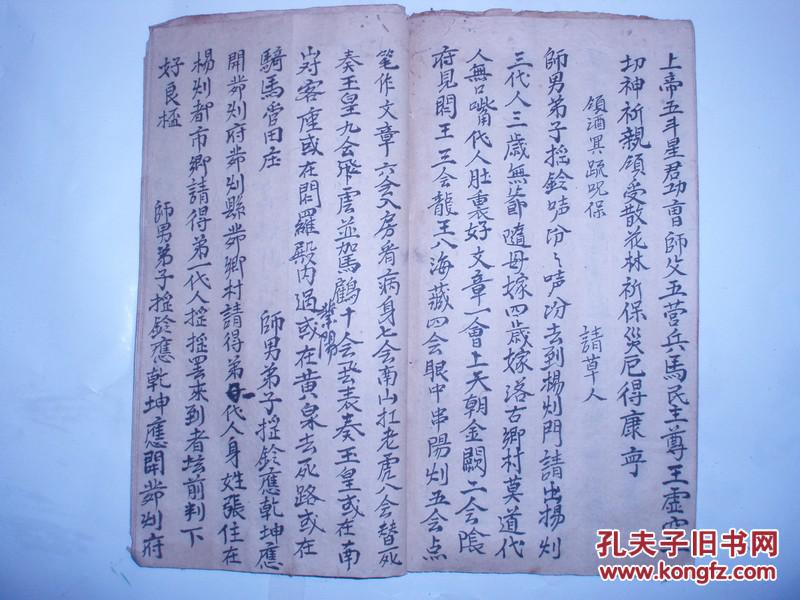 上帝五斗星君功曹師父五营兵馬民主尊王虛空
切神祈親領受散花林祈保災厄得康寧
領酒真疏呪保
請草人
師男弟子揺鈴吪汾々吪汾去到楊州門請出揚州
三代人三歲無爺隨母嫁四歲嫁落古鄉村莫道代
人無口嘴代人肚裏好文章一會上天朝金闕二会陰
府見閻王三会龍王八海藏四会眼中串陽州五会点
笔作文章六会入房看病身七会南山扛老虎八会替死
奏玉皇九会飛雲並駕鶴十会發表奏玉皇或在南
岢客座或在閻羅殿内過或在黄泉去死路或在
紫陽
騎馬管田庄
師男弟子揺鈴應乾坤應
開茆州府茆州縣茆鄉村請得弟代人身姓張住在
楊州都市鄉請得弟一代人揺揺罢來到者坛前判下
好良楹
師男弟子揺鈴應乾坤應開茆州府
孔夫子旧书网
www.kongfz.com